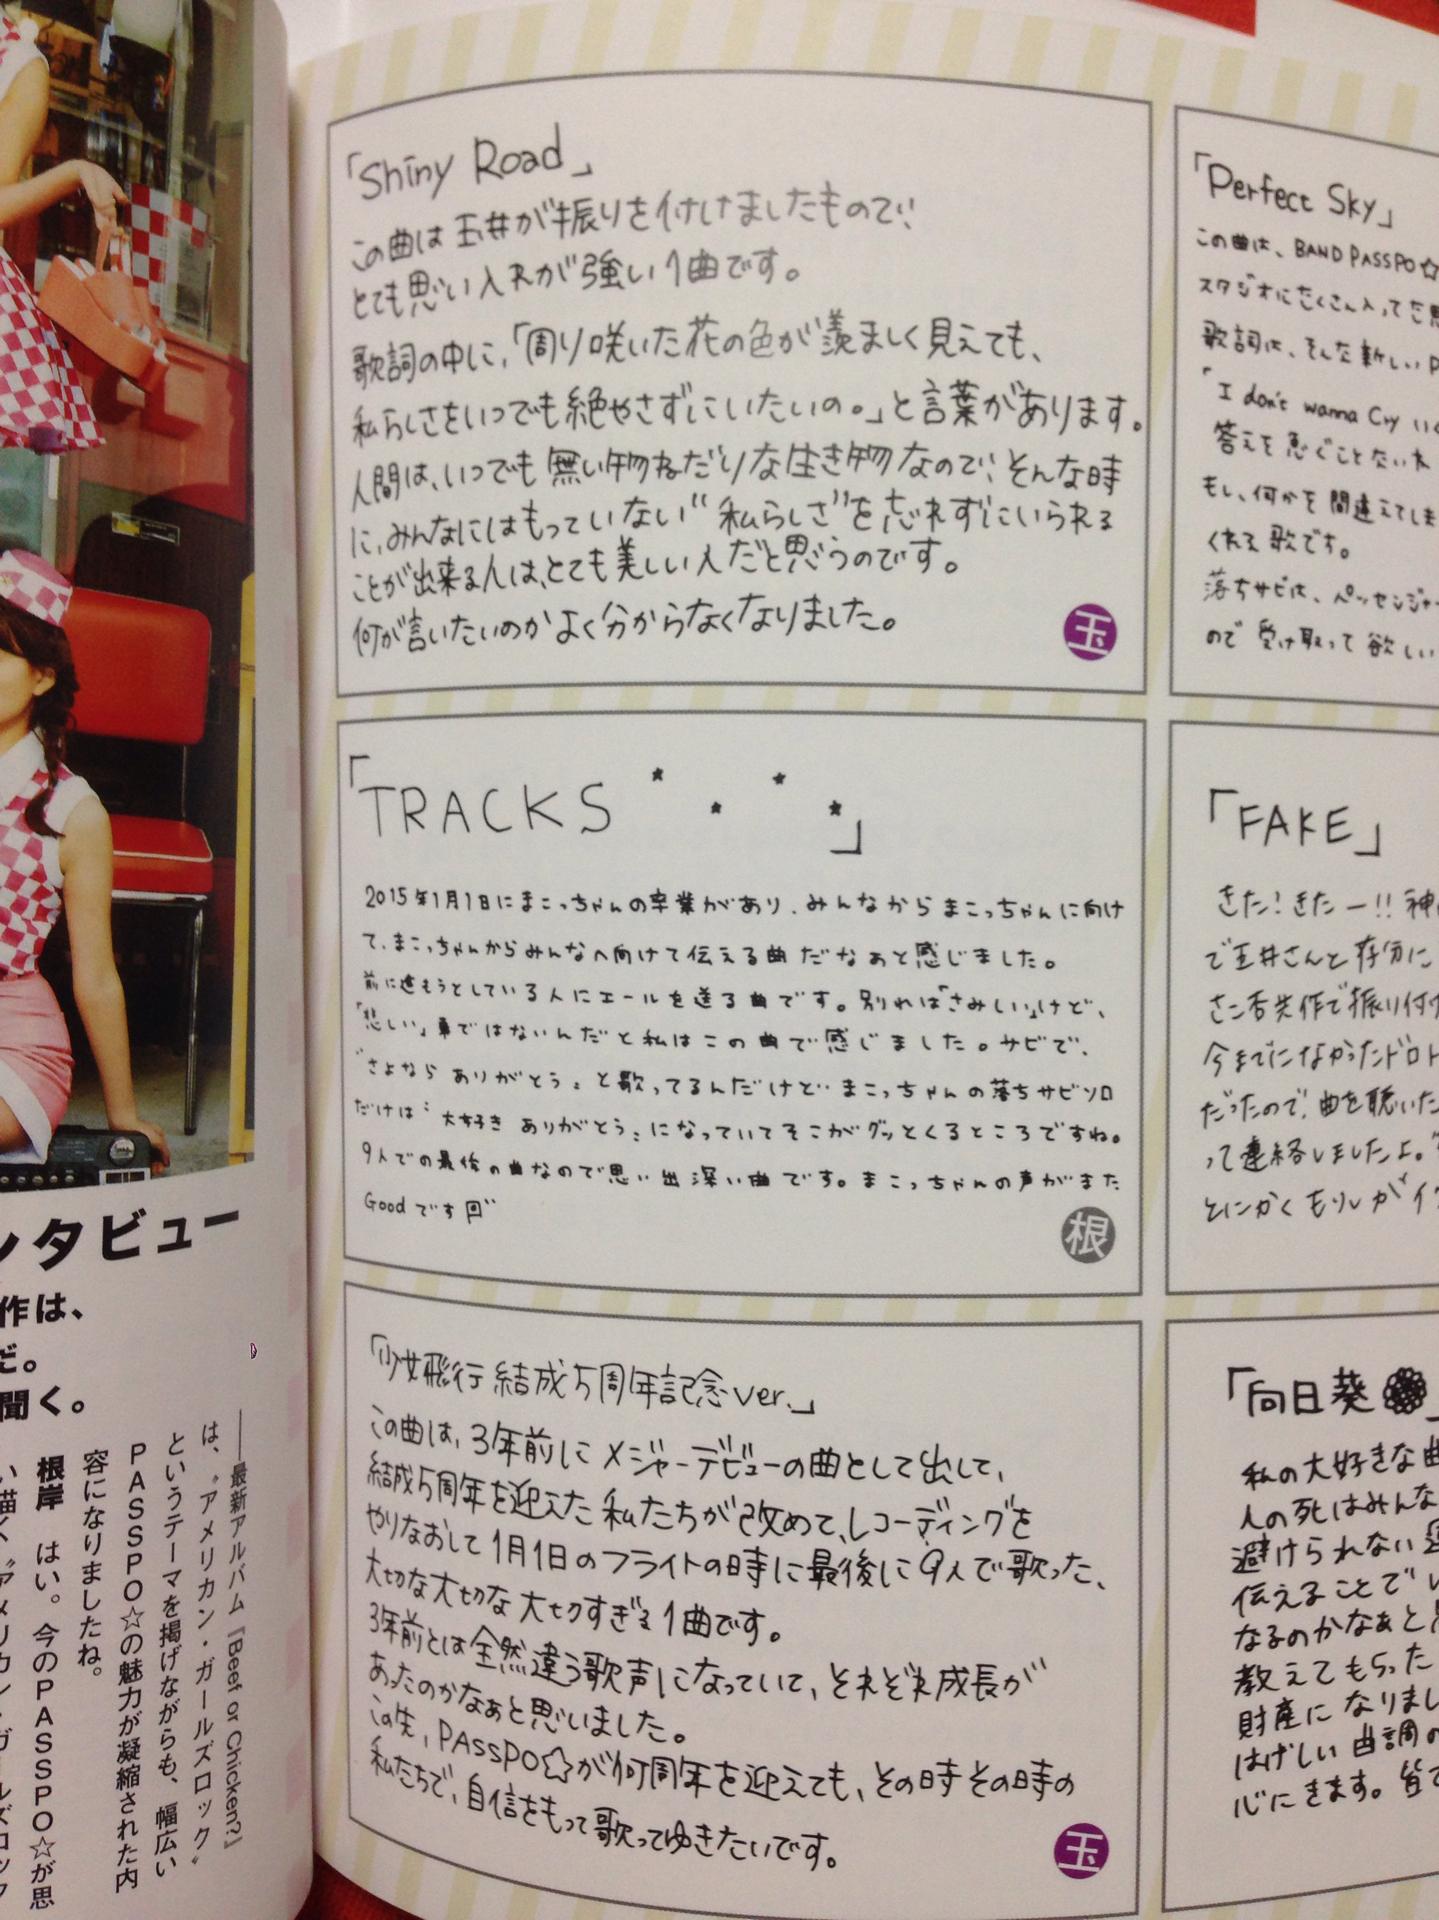 「Shiny Road」
この曲は玉井が振りを付けましたもので、
とても思い入れが強い1曲です。
歌詞の中に、「周り咲いた花の色が羨ましく見えても、
私らしさをいつでも絶やさずにいたいの。」と言葉があります。
人間は、いつでも無い物ねだりな生き物なので、そんな時
に、みんなにはもっていない"私らしさ"を忘れずにいられる
ことが出来る人は、とても美しい人だと思うのです。
何が言いたいのかよく分からなくなりました。
玉
「TRACKS
」
2015年1月1日にまこっちゃんの卒業があり、みんなからまこっちゃんに向け
て、まこっちゃんからみんなへ向けて伝える曲だなぁと感じました。
前に進もうとしている人にエールを送る曲です。別れは「さみしい」けど、
「悲しい」事ではないんだと私はこの曲で感じました。サビで、
"さよなら ありがとう"と歌ってるんだけど…まこっちゃんの落ちサビソロ
だけは"大好き ありがとう"になっていてそこがグッとくるところですね。
9人での最後の曲なので思い出深い曲です。まこっちゃんの声がまた
Goodです
根
「少女飛行 結成5周年記念ver.」
この曲は、3年前にメジャーデビューの曲として出して、
結成5周年を迎えた私たちが改めて、レコーディングを
やりなおして1月1日のフライトの時に最後に9人で歌った、
大切な大切な大切すぎる1曲です。
3年前とは全然違う歌声になっていて、それぞれ成長が
あったのかなぁと思いました。
この先、PASSPO☆が何周年を迎えても、その時その時の
私たちで、自信をもって歌ってゆきたいです。
玉
「Perfect Sky」
この曲は、BAND PASSPO☆
スタジオにたくさん入ってた思
歌詞は、そんな新しいP
「I don't wanna Cry いく
答えを急ぐことないわ
もし、何かを間違えてしま
くれる歌です。
落ちサビは、パッセンジャー
ので受け取って欲しい
「FAKE」
きた!きたー!!神
で玉井さんと存分に
さこ杏共作で振り付け
今までになかったドロド
だったので、曲を聴いた
って連絡しましたよ。
とにかくもりしがイ
「向日葵」
私の大好きな曲
人の死はみんな
避けられない運
伝えることでい
なるのかなぁと思
教えてもらった
財産になりまし
はげしい曲調の
心にきます。皆で
ンタビュー
作は、
だ。
聞く。
――最新アルバム『Beef or Chicken?』
は、〝アメリカン・ガールズロック〟
というテーマを掲げながらも、幅広い
PASSPO☆の魅力が凝縮された内
容になりましたね。
根岸 はい。今のPASSPO☆が思
い描く〝アメリカン・ガールズロック